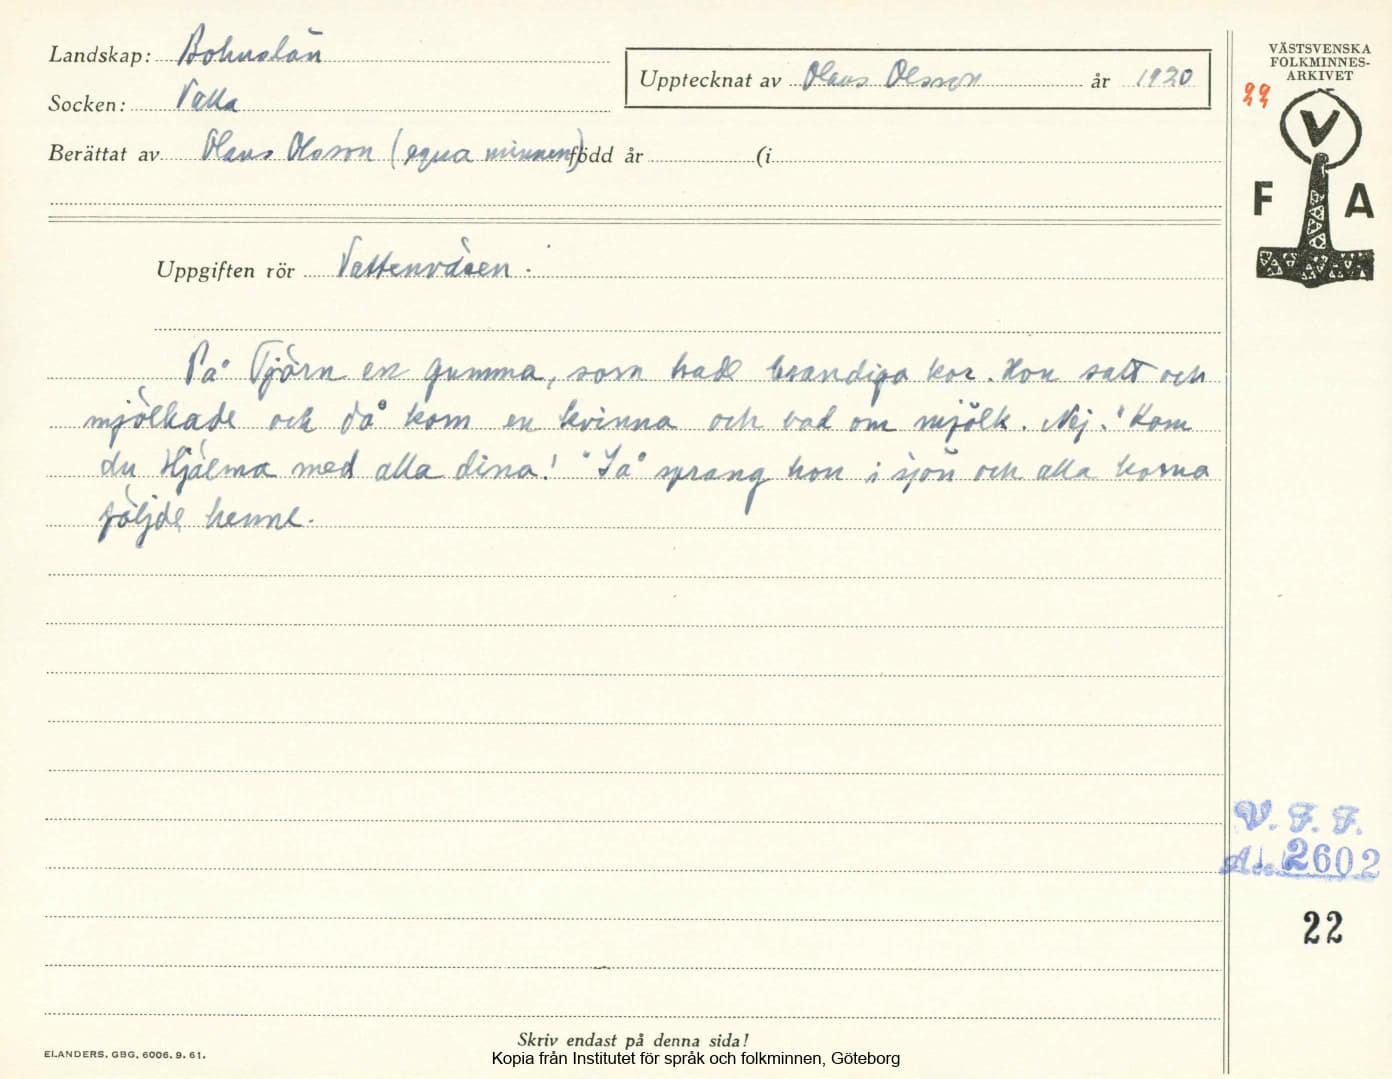 Landskap: Bohuslän
Socken: Valla
Berättat av Olaus Olsson (egna minnen) född år (i
Upptecknat av Olaus Olsson år 1920
VÄSTSVENSKA
FOLKMINNES-
ARKIVET
V
F A
Uppgiften rör Vattenväsen.
På Tjörn en gumma, som hade brandiga kor. Hon satt och
mjölkade och då kom en kvinna och bad om mjölk. Nej. "Kom
du Hjälma med alla dina!" Så sprang hon i sjön och alla korna
följde henne.
V. F. F.
Acc. 2602
22
Skriv endast på denna sida!
ELANDERS, GBG, 6006. 9. 61.
Kopia från Institutet för språk och folkminnen, Göteborg